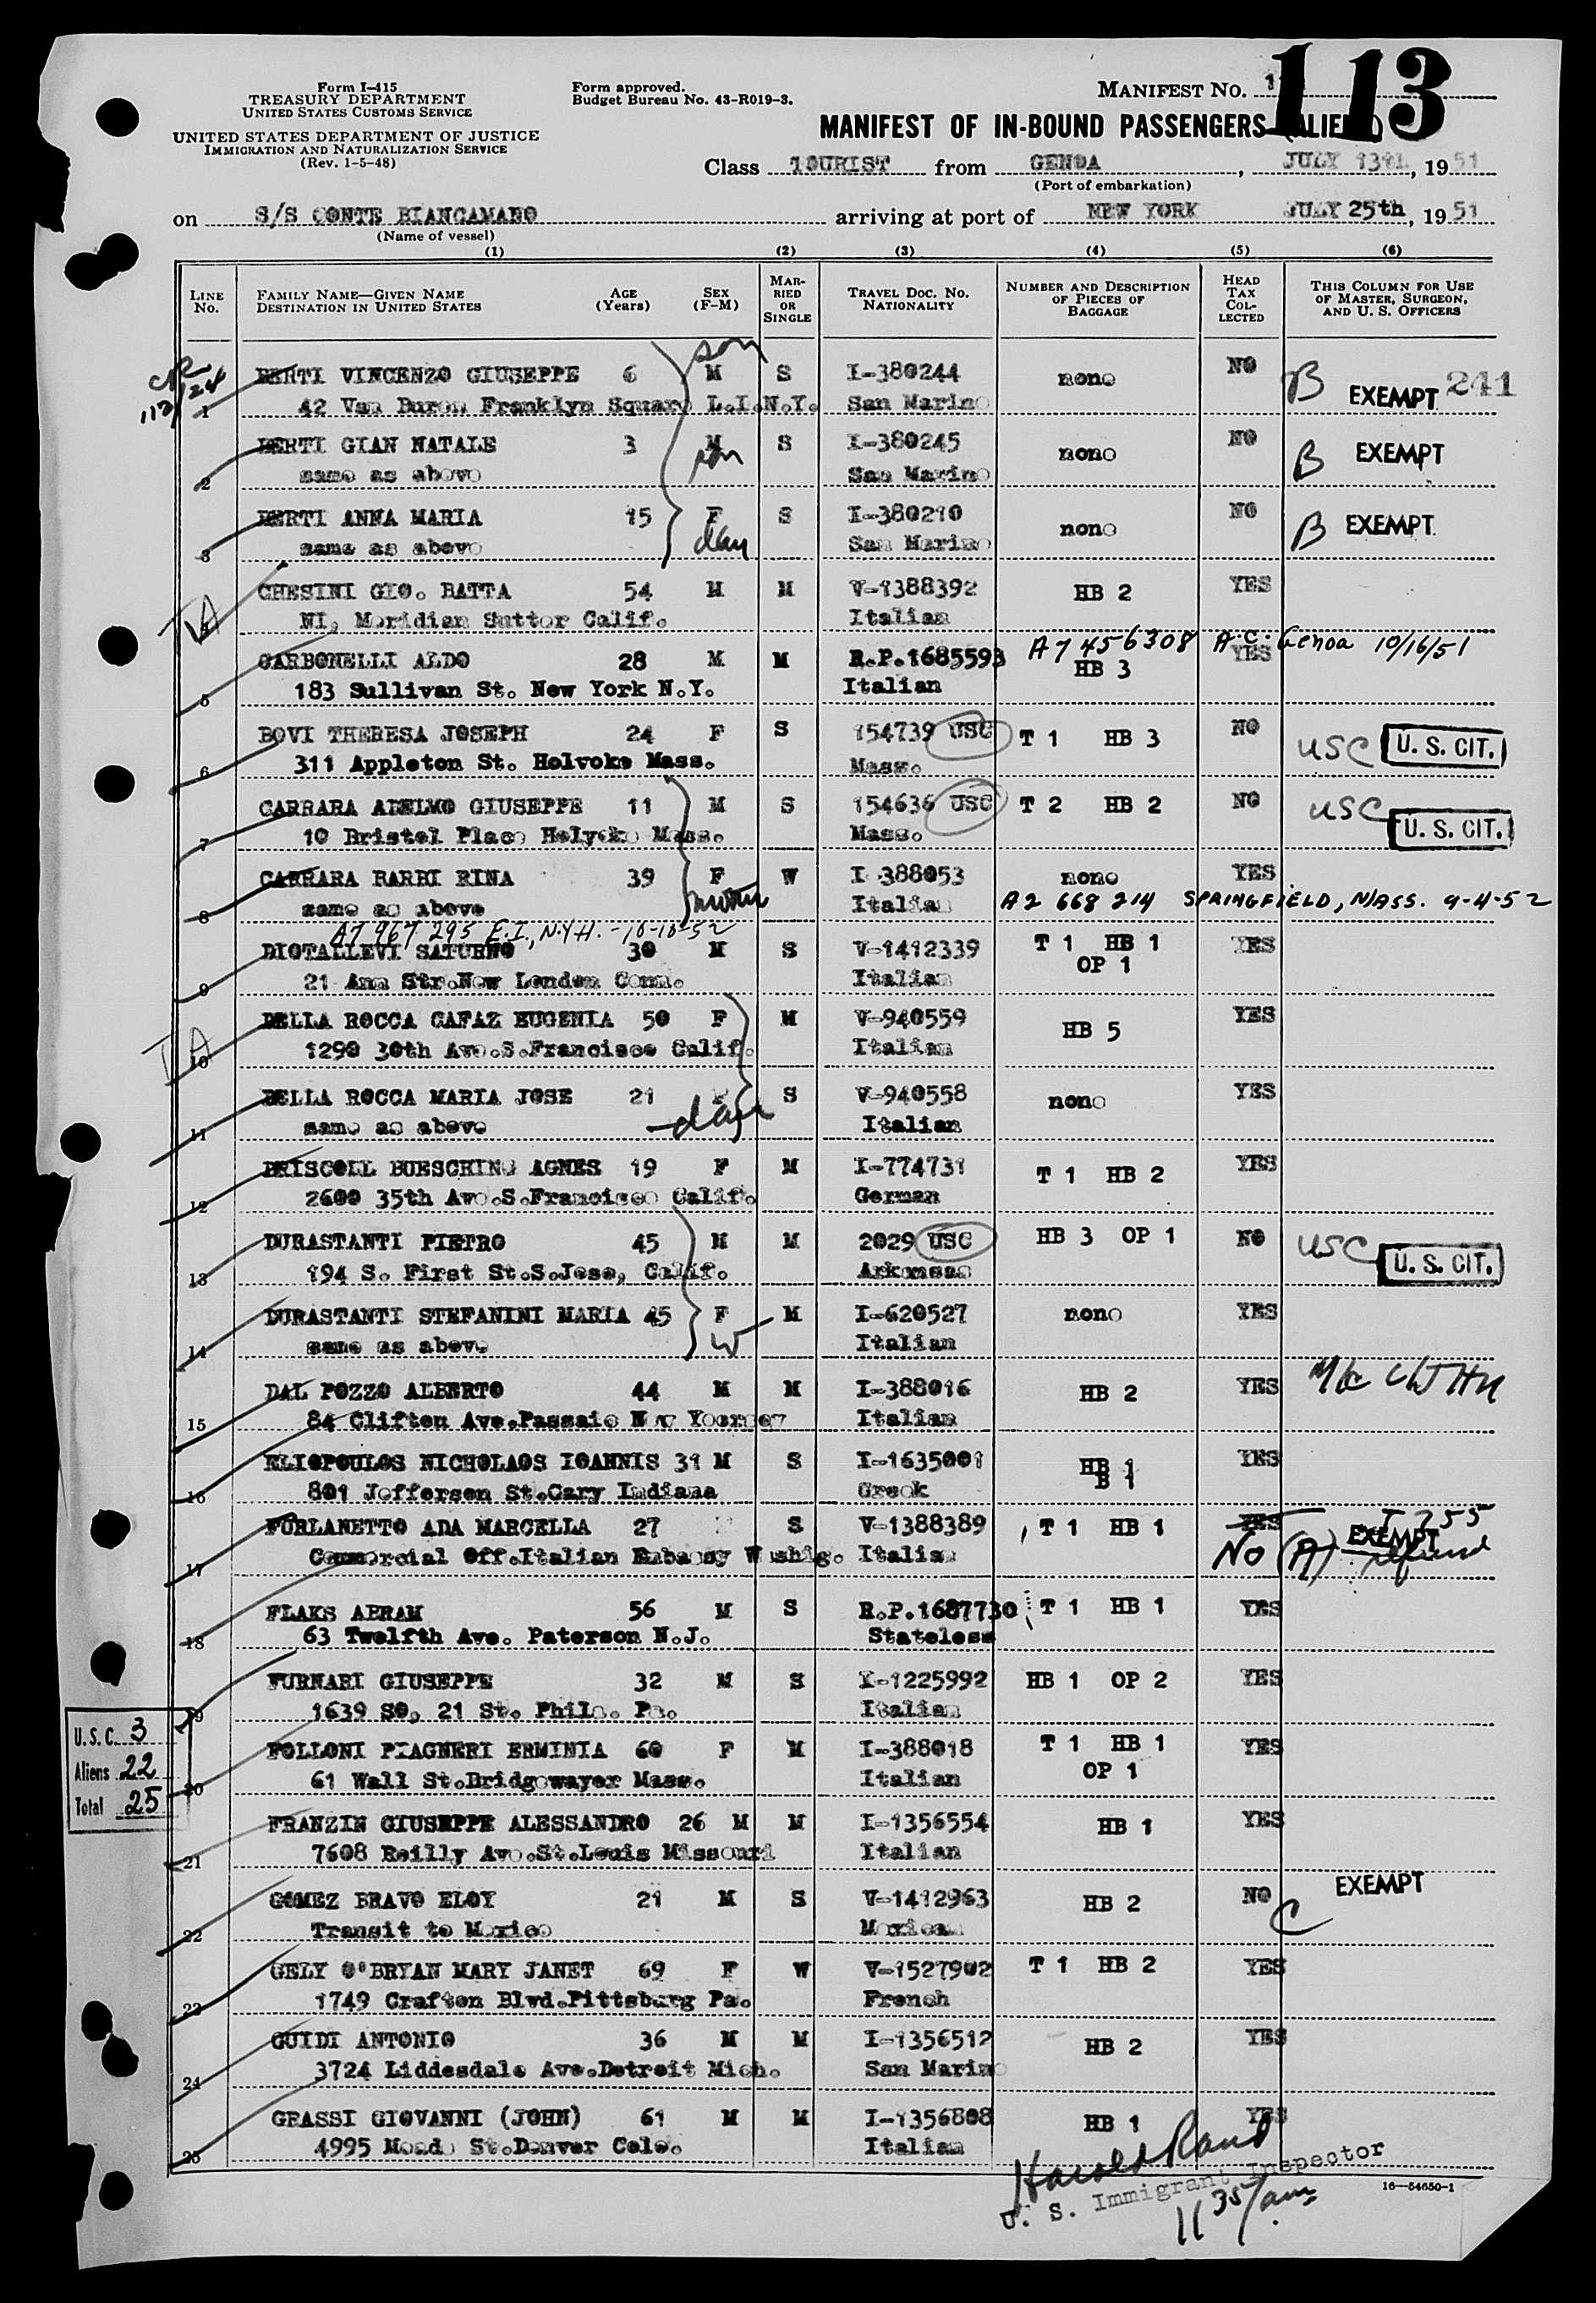 Form I-415
TREASURY DEPARTMENT
UNITED STATES CUSTOMS SERVICE
UNITED STATES DEPARTMENT OF JUSTICE
IMMIGRATION AND NATURALIZATION SERVICE
(Rev. 1-5-48)
Form approved.
Budget Bureau No. 43-R019-3.
MANIFEST NO.
113
MANIFEST OF IN-BOUND PASSENGERS (ALIENS)
Class TOURIST from GENOA, JULY 13th, 1951
(Port of embarkation)
on S/S CONTE BIANCAMANO arriving at port of NEW YORK JULY 25th, 1951
(Name of vessel)
(1) (2) (3) (4) (5) (6)
LINE No. FAMILY NAME—GIVEN NAME DESTINATION IN UNITED STATES AGE (Years) SEX (F-M) MARRIED OR SINGLE TRAVEL DOC. NO. NATIONALITY NUMBER AND DESCRIPTION OF PIECES OF BAGGAGE HEAD TAX COLLECTED THIS COLUMN FOR USE OF MASTER, SURGEON, AND U. S. OFFICERS
son
1 BERTI VINCENZO GIUSEPPE 6 M S I-380244 none NO B EXEMPT 241
42 Van Buren Franklyn Square L.I.N.Y. San Marino
2 BERTI GIAN NATALE 3 M son S I-380245 none NO B EXEMPT
same as above San Marino
3 BERTI ANNA MARIA 15 F S I-380210 none NO B EXEMPT
same as above dau San Marino
4 CHESINI GIO. BATTA 54 M M V-1388392 HB 2 YES
NI, Meridian Sutter Calif. Italian
A7 456308 A.C. Genoa 10/16/51
5 CARBONELLI ALDO 28 M M R.P.1685593 HB 3 YES
183 Sullivan St. New York N.Y. Italian
6 BOVI THERESA JOSEPH 24 F S 154739 USC T 1 HB 3 NO USC U. S. CIT.
311 Appleton St. Holyoke Mass. Mass.
7 CARRARA ADELMO GIUSEPPE 11 M S 154636 USC T 2 HB 2 NO USC U. S. CIT.
10 Bristol Place Holyoke Mass. Mass.
8 CARRARA BARBI RINA 39 F W I-388053 none YES
same as above mother Italian A2 668 214 SPRINGFIELD, MASS. 9-4-52
A7 967 295 E.I., N.Y.H. - 10-10-52
9 DIOTALLEVI SATURNO 30 M S V-1412339 T 1 HB 1 OP 1 YES
21 Ann Str.New London Conn. Italian
10 DELLA ROCCA CAFAZ EUGENIA 50 F M V-940559 HB 5 YES
1290 30th Ave.S.Francisco Calif. Italian
11 DELLA ROCCA MARIA JOSE 21 F S V-940558 none YES
same as above dau Italian
12 DRISCOLL BUESCHING AGNES 19 F M I-774731 T 1 HB 2 YES
2600 35th Ave.S.Francisco Calif. German
13 DURASTANTI PIETRO 45 M M 2029 USC HB 3 OP 1 NO USC U. S. CIT.
194 S. First St.S.Jose, Calif. Arkansas
14 DURASTANTI STEFANINI MARIA 45 F M I-620527 none YES
same as above W Italian
15 DAL POZZO ALBERTO 44 M M I-388016 HB 2 YES
84 Clifton Ave.Passaic New Yoersey Italian
16 ELIOPOULOS NICHOLAOS IOANNIS 31 M S I-1635001 HB 1 B 1 YES
801 Jefferson St.Gary Indiana Greek
17 FURLANETTO ADA MARCELLA 27 S V-1388389 T 1 HB 1 YES EXEMPT
Commercial Off.Italian Embassy Washig. Italian NO (A) refund
18 FLAKS ABRAM 56 M S R.P.1687730 T 1 HB 1 YES
63 Twelfth Ave. Paterson N.J. Stateless
19 FURNARI GIUSEPPE 32 M S I-1225992 HB 1 OP 2 YES
1639 SO, 21 St. Phila. Pa. Italian
U. S. C. 3
Aliens 22
Total 25
20 FOLLONI PIAGNERI ERMINIA 60 F M I-388018 T 1 HB 1 OP 1 YES
61 Wall St.Bridgewayer Mass. Italian
21 FRANZIN GIUSEPPE ALESSANDRO 26 M M I-1356554 HB 1 YES
7608 Reilly Ave.St.Louis Missouri Italian
22 GOMEZ BRAVO ELOY 21 M S V-1412963 HB 2 NO C EXEMPT
Transit to Mexico Mexican
23 GELY O'BRYAN MARY JANET 69 F W V-1527902 T 1 HB 2 YES
1749 Crafton Blvd.Pittsburg Pa. French
24 GUIDI ANTONIO 36 M M I-1356512 HB 2 YES
3724 Liddesdale Ave.Detroit Mich. San Marino
25 GRASSI GIOVANNI (JOHN) 61 M M I-1356808 HB 1 YES
4995 Meade St.Denver Colo. Italian
Harold Rand
U. S. Immigrant Inspector
11 35/am
16—54650-1